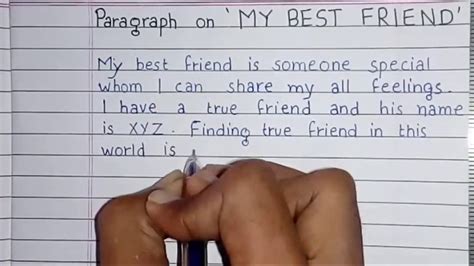 Paragraph on 'MY BEST FRIEND'
My best friend is someone special
whom I can share my all feelings.
I have a true friend and his name
is XYZ. Finding true friend in this
world is